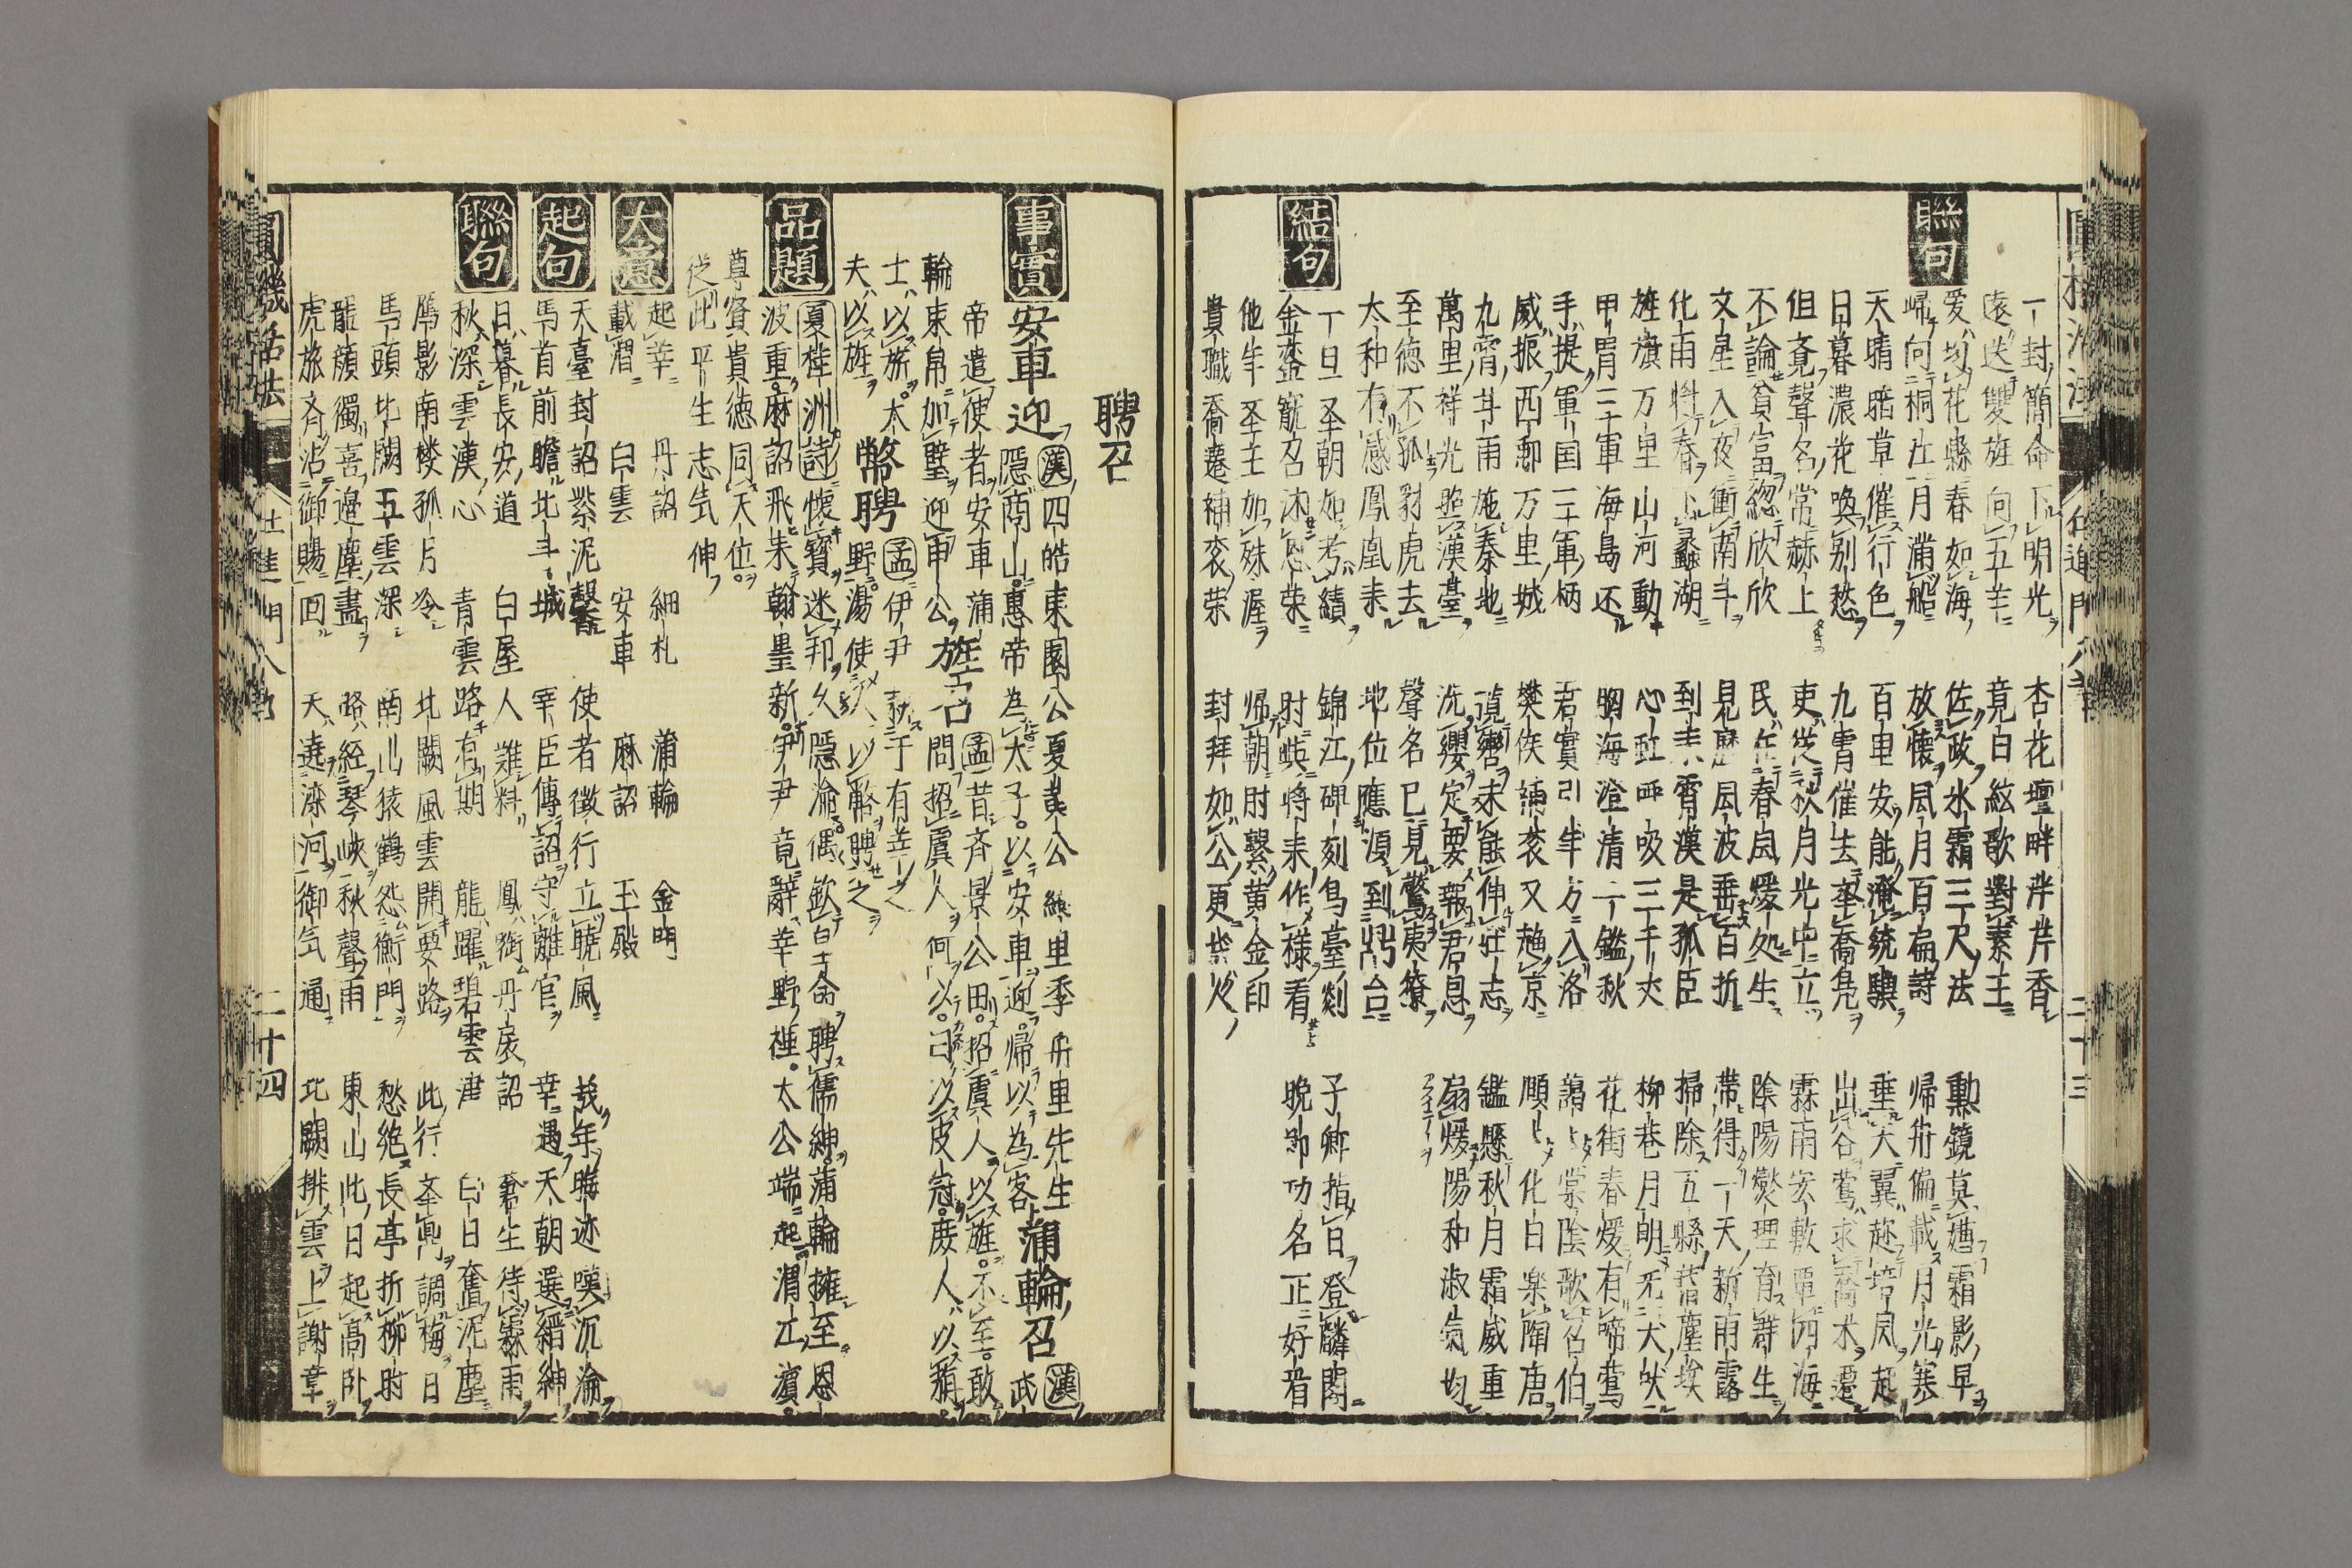 一封簡命下明光 杏花壇畔泮芹香
遠送雙旌向五羊 竟日絃歌對素王
聯句
爱均花縣春如海 佐政水霜三尺法 勲鏡莫嬉霜影早
歸向桐江月滿船 放懐風月百扁詩 帰舟偏載月光寒
天晴暗草催行色 百里安能淹統驥 垂天翼赴培风起
日暮濃花喚别愁 九霄催去奪喬凫 出谷鶯求喬木遷
但竟聲名常赫上 吏從秋月光中立 霖雨宏敷覃四海
不論貧富総欣欣 民在春風煖処生 陰陽爕理育群生
文星入夜衝南斗 見歷風波垂百折 帶得一天新雨露
化雨料春上蠡湖 到来霄漢是孤臣 掃除五縣舊塵埃
旌旗万里山河動 心吐呼吸三千丈 柳巷月明无犬吠
甲胃三軍海島还 胸海澄清一鑑秋 花街春煖有啼鶯
手提軍国三軍柄 君實引年方入洛 藹上棠陰歌召伯
威振西鄅万里城 樊侯補衮又趍京 順上化日楽陶唐
九霄斗雨施秦地 攬轡未能伸壮志 鑑懸秋月霜威重
萬里祥光照漢臺 洗纓定要報君恩 扇煖陽和淑氣均
至徳不孤豺虎去 聲名已見驚夷獠
太和有感鳳凰来 地位應須到鼎台
一旦圣朝如考績 錦江碑刻鳥臺剡 子卿指日登麟閣
結句
金莖寵召沐恩荣 肘蛱将来作様看 晚節功名正好看
他年圣主加殊渥 帰朝肘繫黄金印
貴職喬遷補衮荣 封拜如公更黑火
聘召
事實
安車迎 漢四皓東園公夏黄公綺里季甪里先生
隠商山惠帝為太子以安車迎帰以為客 蒲輪召 漢武
帝遣使者安車蒲
輪束帛加璧迎申公 旌召 孟昔斉景公田招虞人以旌不至敢
問招虞人何以曰以皮冠庶人以旃
士以旂太
夫以旌 幣聘 孟伊尹耕于有莘之
野湯使人以幣聘之
品題
夏桂洲詩 懐寳迷邦久隠淪偶歓白士命聘儒紳蒲輪擁至恩
波重麻詔飛来翰墨新伊尹竟辭莘野裡太公端起渭江濱
尊賢貴徳同天位
從此平生志气伸
大意
起莘 丹詔 細札 蒲輪 金明
載渭 白雲 安車 麻詔 玉殿
起句
天臺封詔紫泥馨 使者徴行立曉風 莪年晦迹嘆沉淪
馬首前瞻北斗城 宰臣傳詔守離宫 幸遇天朝選縉紳
聯句
日暮長安道 白屋人難料 鳳銜丹扆詔 蒼生待霖雨
秋深雲漢心 青雲路有期 龍躍碧雲津 白日奮泥塵
鴈影南楼孤月冷 北闕風雲開要路 此行奎鼎調梅日
馬頭北闕五雲深 南山猿鶴怨衡門 愁絶長亭折柳时
龍顔獨喜邉塵盡 路経琴峡秋聲雨 東山此日起高卧
虎旅斉沾御賜回 天遶滦河御气通 北闕排雲上謝章
圓機活法 仕進門八卷 二十四